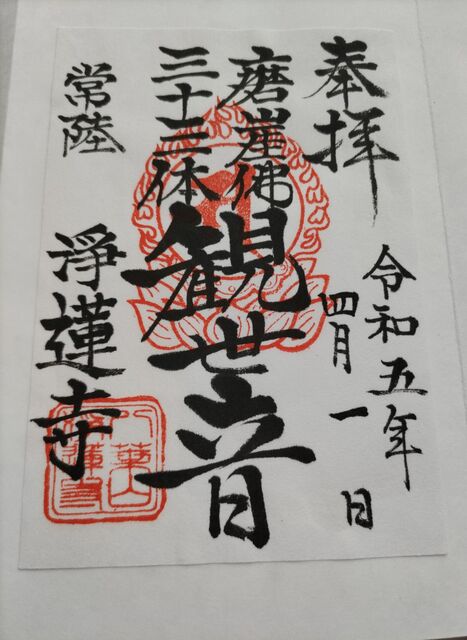 奉拝
令和五年
四月一日
磨崖佛
三十三体
観世音
常陸
淨蓮寺